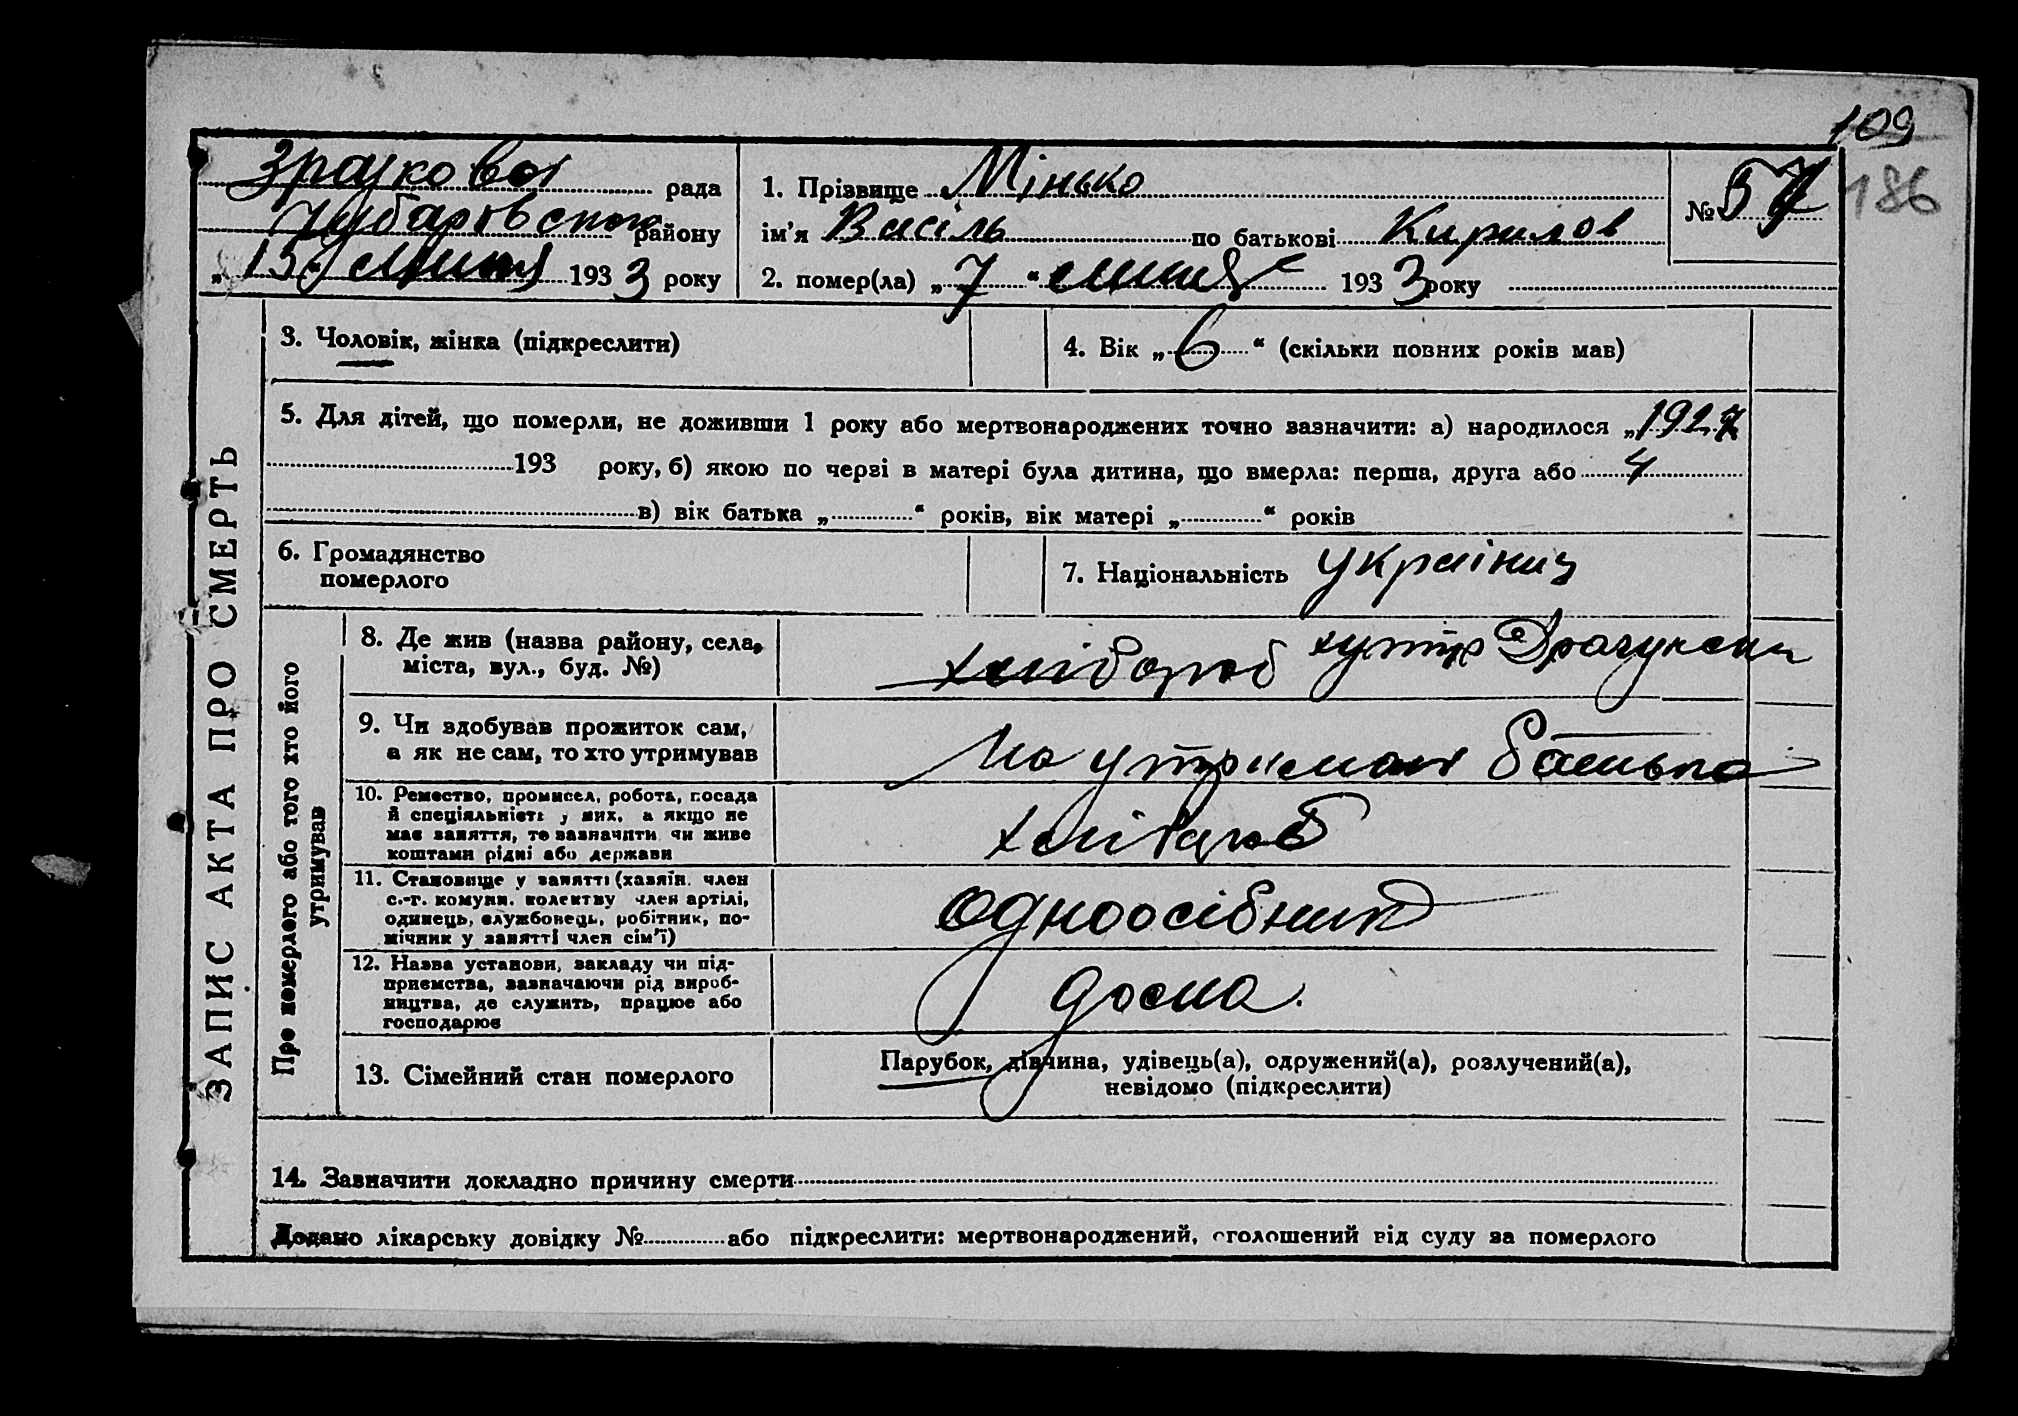 109
186
Зразкова рада
Чубарівського району
„ 15 “ липня 1933 року
1. Прізвище Мінько
ім'я Василь по батькові Кирилов
№ 57
2. помер(ла) „ 7 “ липня 1933 року
ЗАПИС АКТА ПРО СМЕРТЬ
3. Чоловік, жінка (підкреслити)
4. Вік „ 6 “ (скільки повних років мав)
5. Для дітей, що померли, не доживши 1 року або мертвонароджених точно зазначити: а) народилося „ 1927
193 року, б) якою по черзі в матері була дитина, що вмерла: перша, друга або 4
в) вік батька „ “ років, вік матері „ “ років
6. Громадянство
померлого
7. Національність українец
Про померлого або того хто його
утримував
8. Де жив (назва району, села,
міста, вул., буд. №)
хлібороб хутір
9. Чи здобував прожиток сам,
а як не сам, то хто утримував
На утриманні батька
10. Ремество, промисел, робота, посада
й спеціяльність у них, а якщо не
має заняття, то зазначити чи живе
коштами рідні або держави
хлібороб
11. Становище у занятті (хазяїн, член
с.-г. комуни, колективу член артілі,
одинець, службовець, робітник, по-
мічник у занятті член сім'ї)
одноосібник
12. Назва установи, закладу чи під-
приємства, зазначаючи рід вироб-
ництва, де служить, працює або
господарює
дома.
13. Сімейний стан померлого
Парубок, дівчина, удівець(а), одружений(а), розлучений(а),
невідомо (підкреслити)
14. Зазначити докладно причину смерти
Додано лікарську довідку № або підкреслити: мертвонароджений, оголошений від суду за померлого